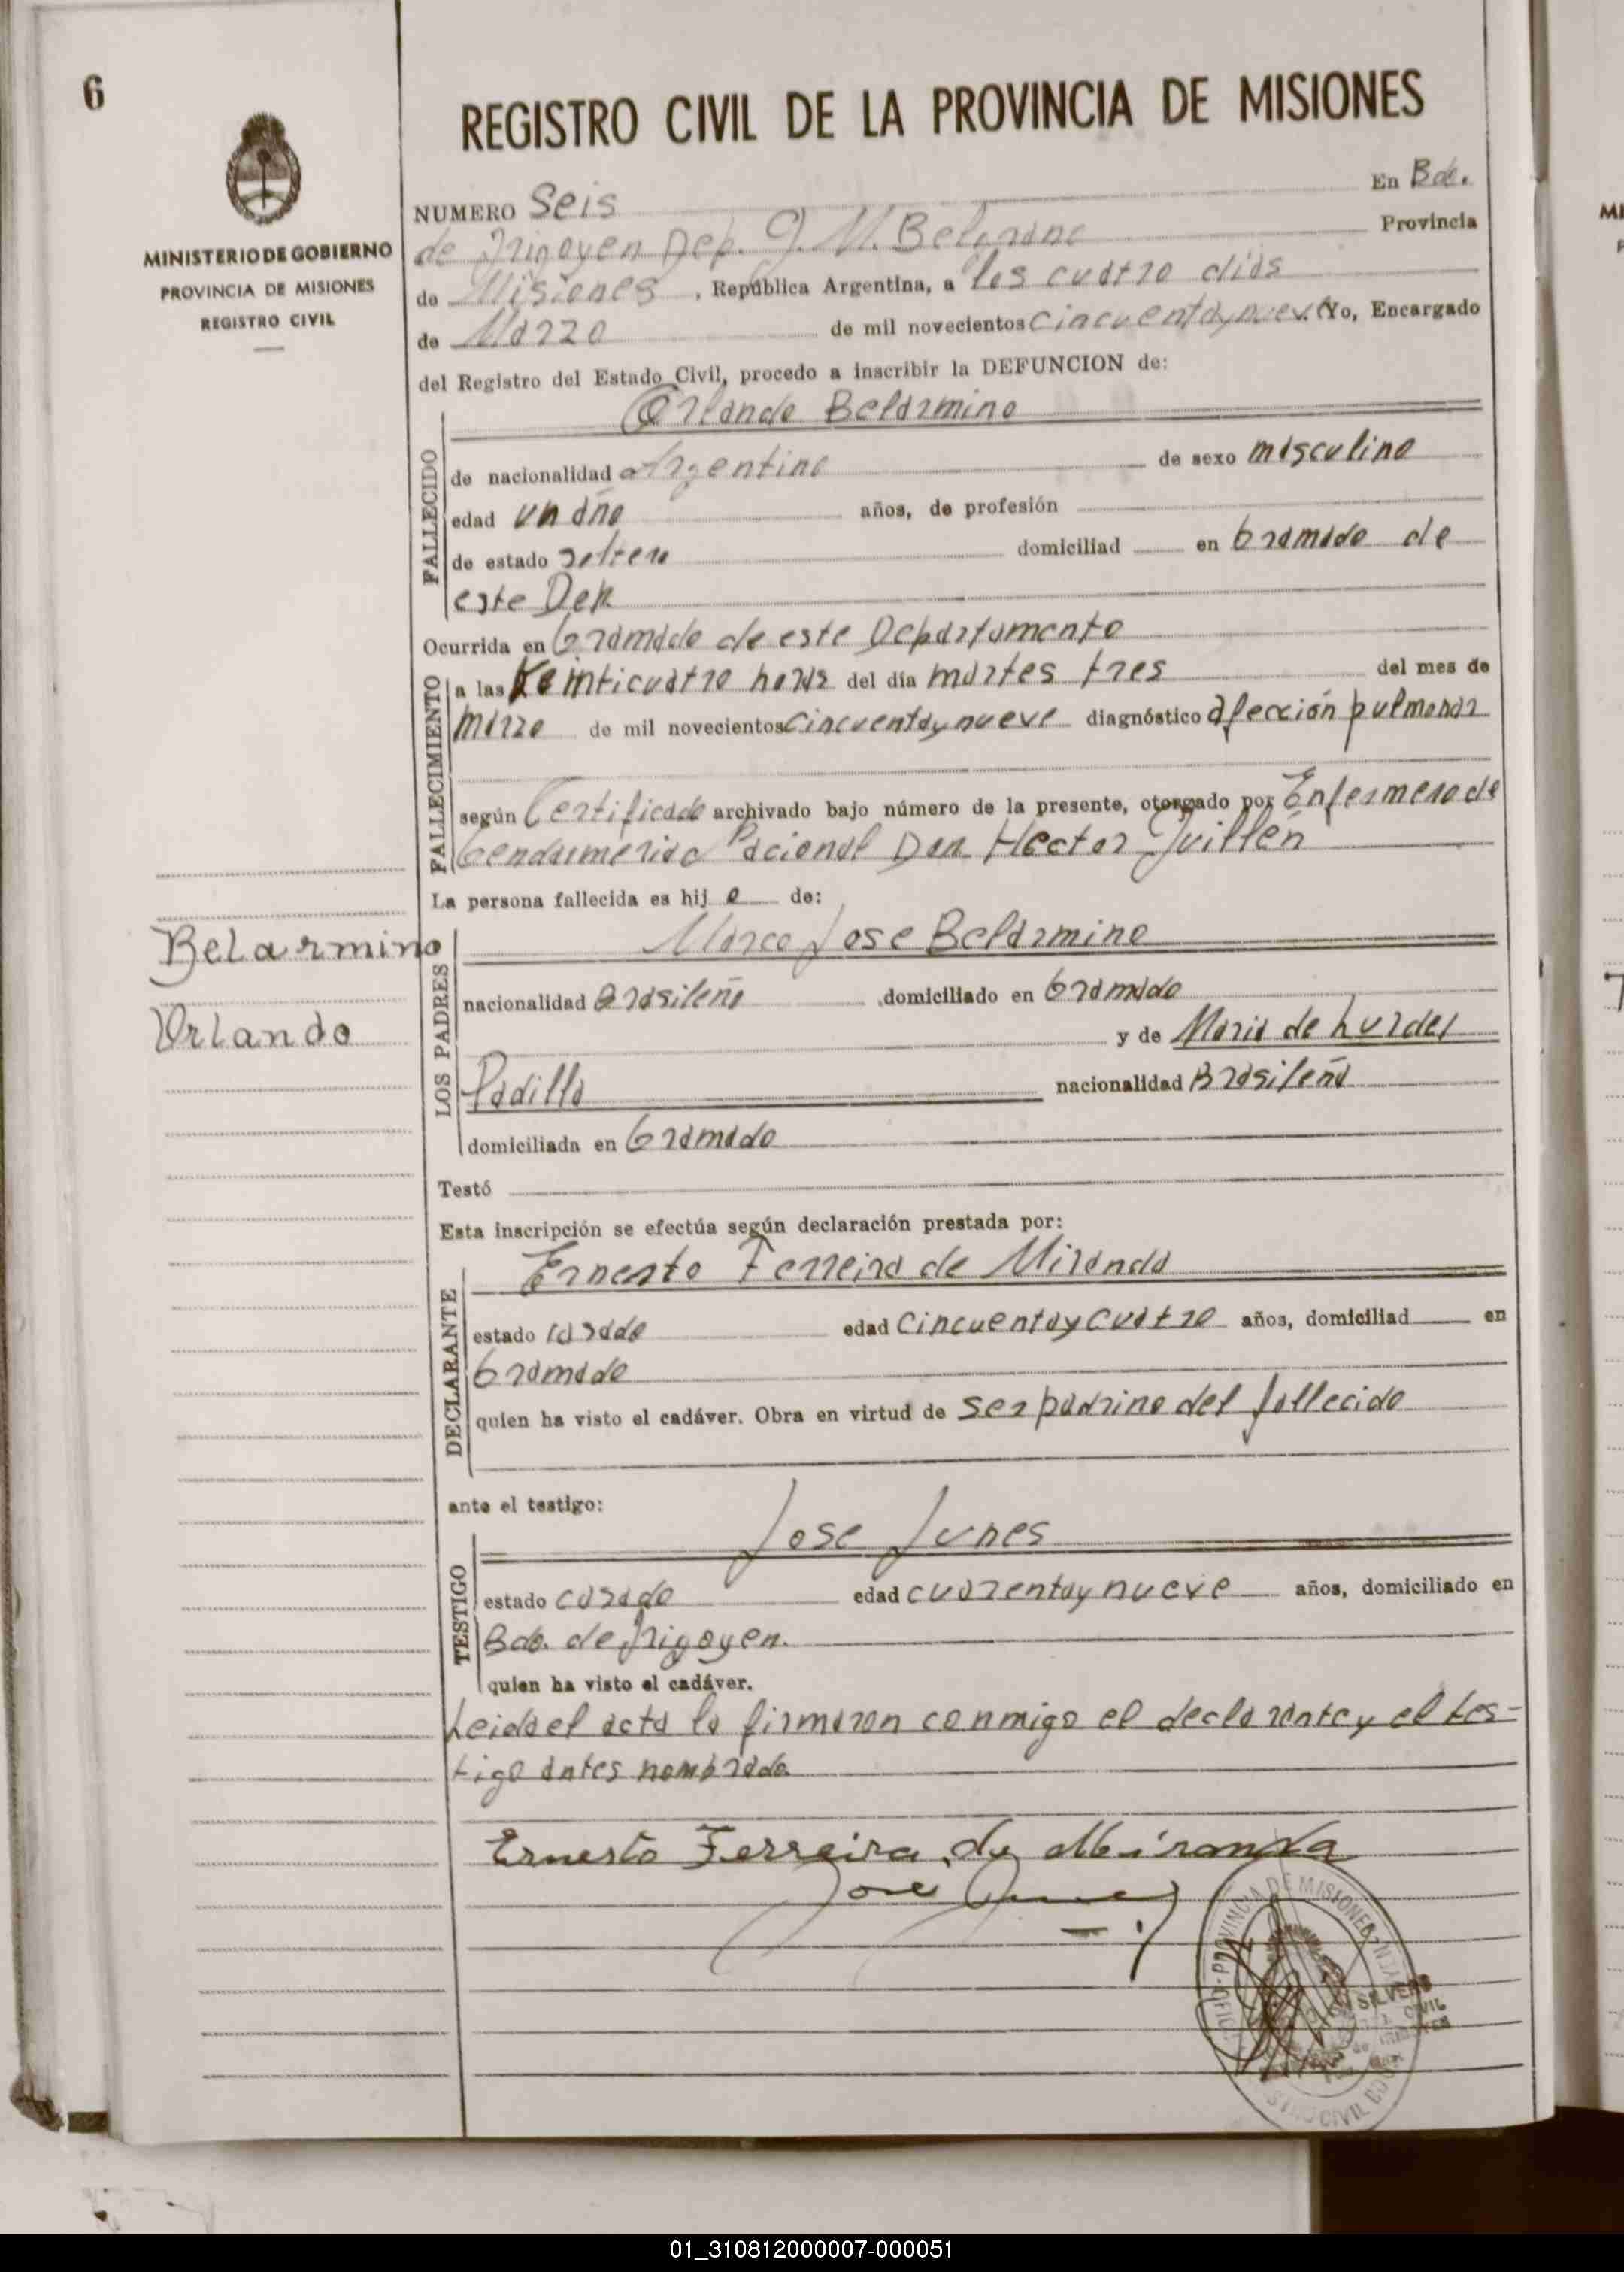 6
REGISTRO CIVIL DE LA PROVINCIA DE MISIONES
MINISTERIO DE GOBIERNO
PROVINCIA DE MISIONES
REGISTRO CIVIL
NUMERO Seis En Bdo.
de Irigoyen Dep. G. M. Belgrano Provincia
de Misiones, República Argentina, a los cuatro dias
de Marzo de mil novecientos cincuenta y nueve Yo, Encargado
del Registro del Estado Civil, procedo a inscribir la DEFUNCION de:
Orlando Belarmino
FALLECIDO
de nacionalidad Argentina de sexo masculino
edad un año años, de profesión
de estado soltero domiciliad en Gramado de
este Dep.
Ocurrida en Gramado de este Departamento
FALLECIMIENTO
a las Veinticuatro horas del día martes tres del mes de
marzo de mil novecientos cincuenta y nueve diagnóstico afección pulmonar
según Certificado archivado bajo número de la presente, otorgado por Enfermero de
Gendarmeria Nacional Don Hector Guillén
La persona fallecida es hij o de:
Marco Jose Belarmino
Belarmino
Orlando
LOS PADRES
nacionalidad Brasileño domiciliado en Gramado
y de Maria de Lurdes
Padilla nacionalidad Brasileña
domiciliada en Gramado
Testó
Esta inscripción se efectúa según declaración prestada por:
Ernesto Ferreira de Miranda
DECLARANTE
estado casado edad cincuenta y cuatro años, domiciliad en
Gramado
quien ha visto el cadáver. Obra en virtud de ser padrino del fallecido
ante el testigo:
Jose Junes
TESTIGO
estado casado edad cuarenta y nueve años, domiciliado en
Bdo. de Irigoyen.
quien ha visto el cadáver.
Leida el acta la firmaron conmigo el declarante y el tes-
tigo antes nombrado.
Ernesto Ferreira de Miranda
Jose
PROVINCIA DE MISIONES
SILVERO
CIVIL
01_310812000007-000051